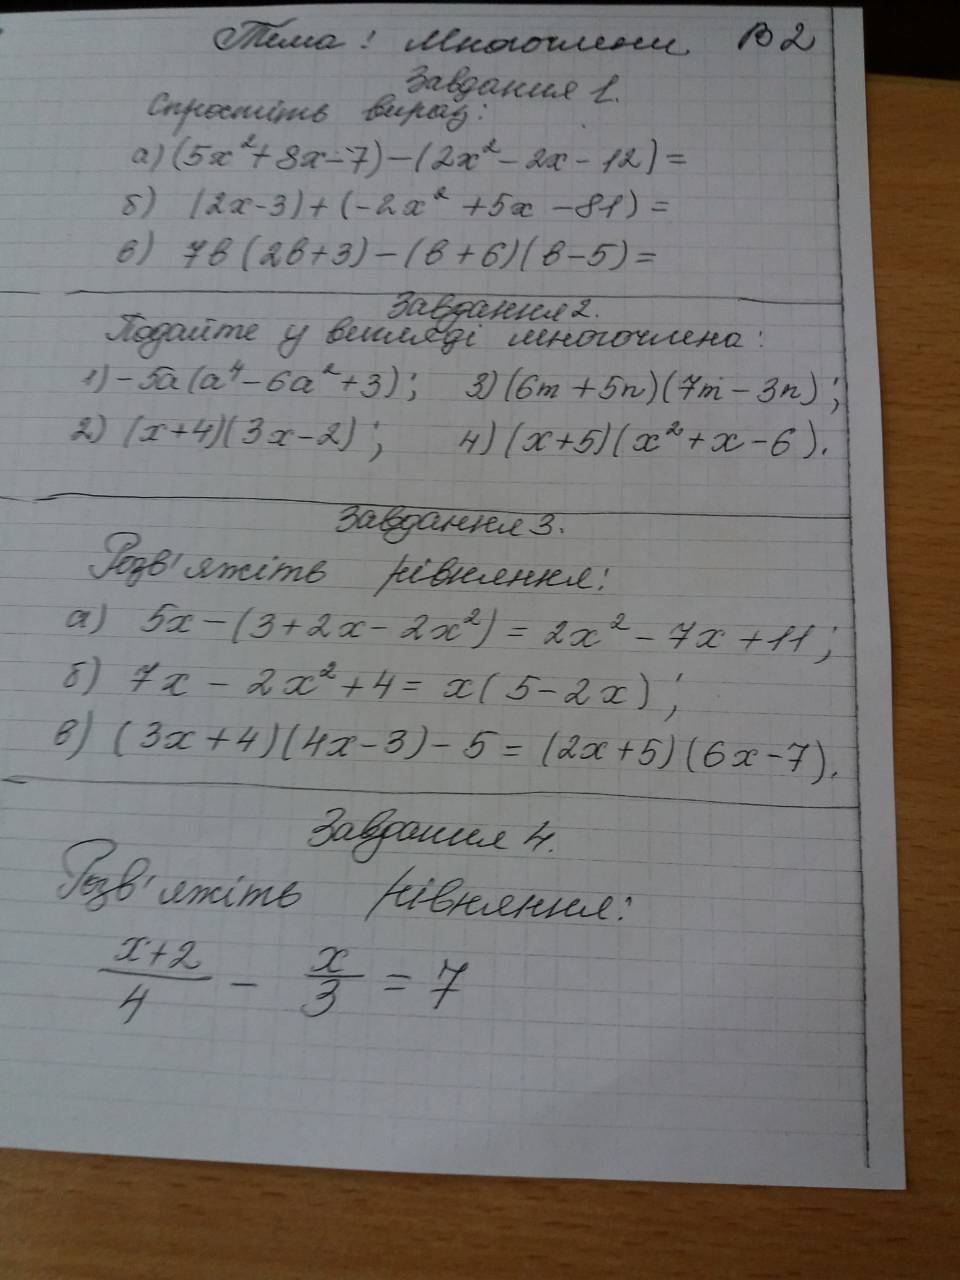 Тема: Многочлени В2
Завдання 1.
Спростіть вираз:
а) (5x² + 8x - 7) - (2x² - 2x - 12) =
б) (2x - 3) + (-2x² + 5x - 81) =
в) 7в (2в + 3) - (в + 6)(в - 5) =
Завдання 2.
Подайте у вигляді многочлена:
1) -5a (a⁴ - 6a² + 3); 3) (6m + 5n)(7m - 3n);
2) (x + 4)(3x - 2); 4) (x + 5)(x² + x - 6).
Завдання 3.
Розв'яжіть рівняння:
а) 5x - (3 + 2x - 2x²) = 2x² - 7x + 11;
б) 7x - 2x² + 4 = x(5 - 2x);
в) (3x + 4)(4x - 3) - 5 = (2x + 5)(6x - 7).
Завдання 4.
Розв'яжіть рівняння:
(x+2)/4 - x/3 = 7